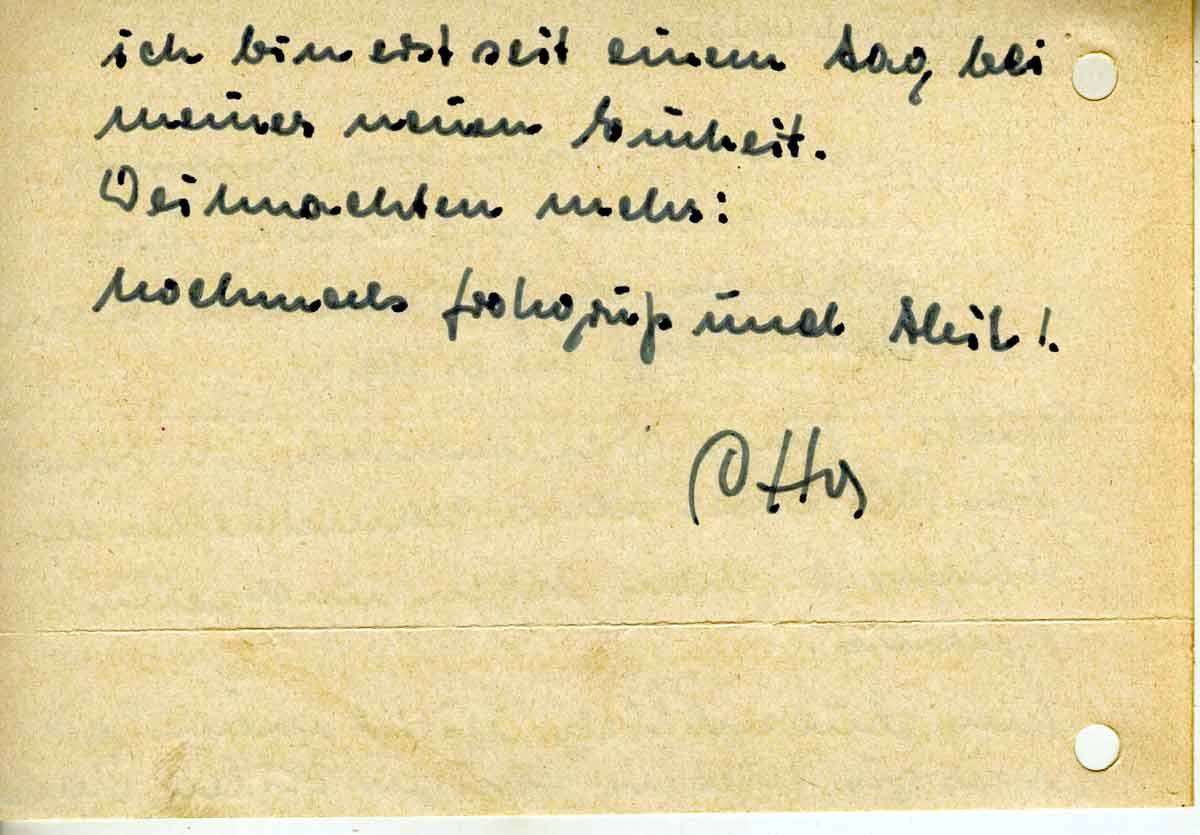 ich bin erst seit einem Tag bei
meiner neuen Einheit.
Weihnachten mehr:
nochmals frohgruß und Heil!
Otto